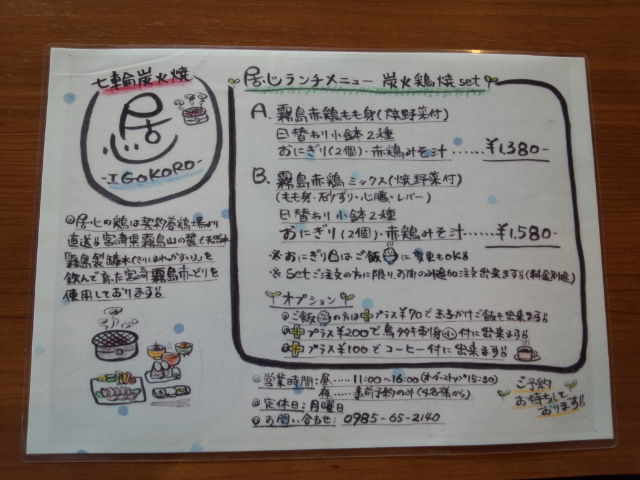 七輪炭火焼
居心
-IGOKORO-
@居心の鶏は契約養鶏場より
直送!! 宮崎県霧島山の麓で天然水
霧島裂罅水(きりしまれっかすい)を
飲んで育った宮崎霧島赤どりを
使用しております!!
居心ランチメニュー 炭火鶏焼set
A. 霧島赤鶏もも身(焼野菜付)
日替わり小鉢2種
おにぎり(2個)・赤鶏みそ汁……¥1,380-
B. 霧島赤鶏ミックス(焼野菜付)
(もも身・砂ずり・心臓・レバー)
日替わり小鉢2種
おにぎり(2個)・赤鶏みそ汁……¥1,580-
※おにぎりはご飯に変更もOK!!
※Setご注文の方に限り、お肉の追加注文出来ます!!(料金別途)
オプション
@ご飯の方は+プラス¥70で玉子かけご飯も出来ます!!
@+プラス¥200で鳥タタキ刺身小付に出来ます!!
@+プラス¥100でコーヒー付に出来ます!!
@営業時間:昼……11:00~16:00(オーダーストップ15:30)
夜……事前予約のみ(4名様から)
@定休日:月曜日
@お問い合わせ: 0985-65-2140
ご予約
お待ちして
おります!!